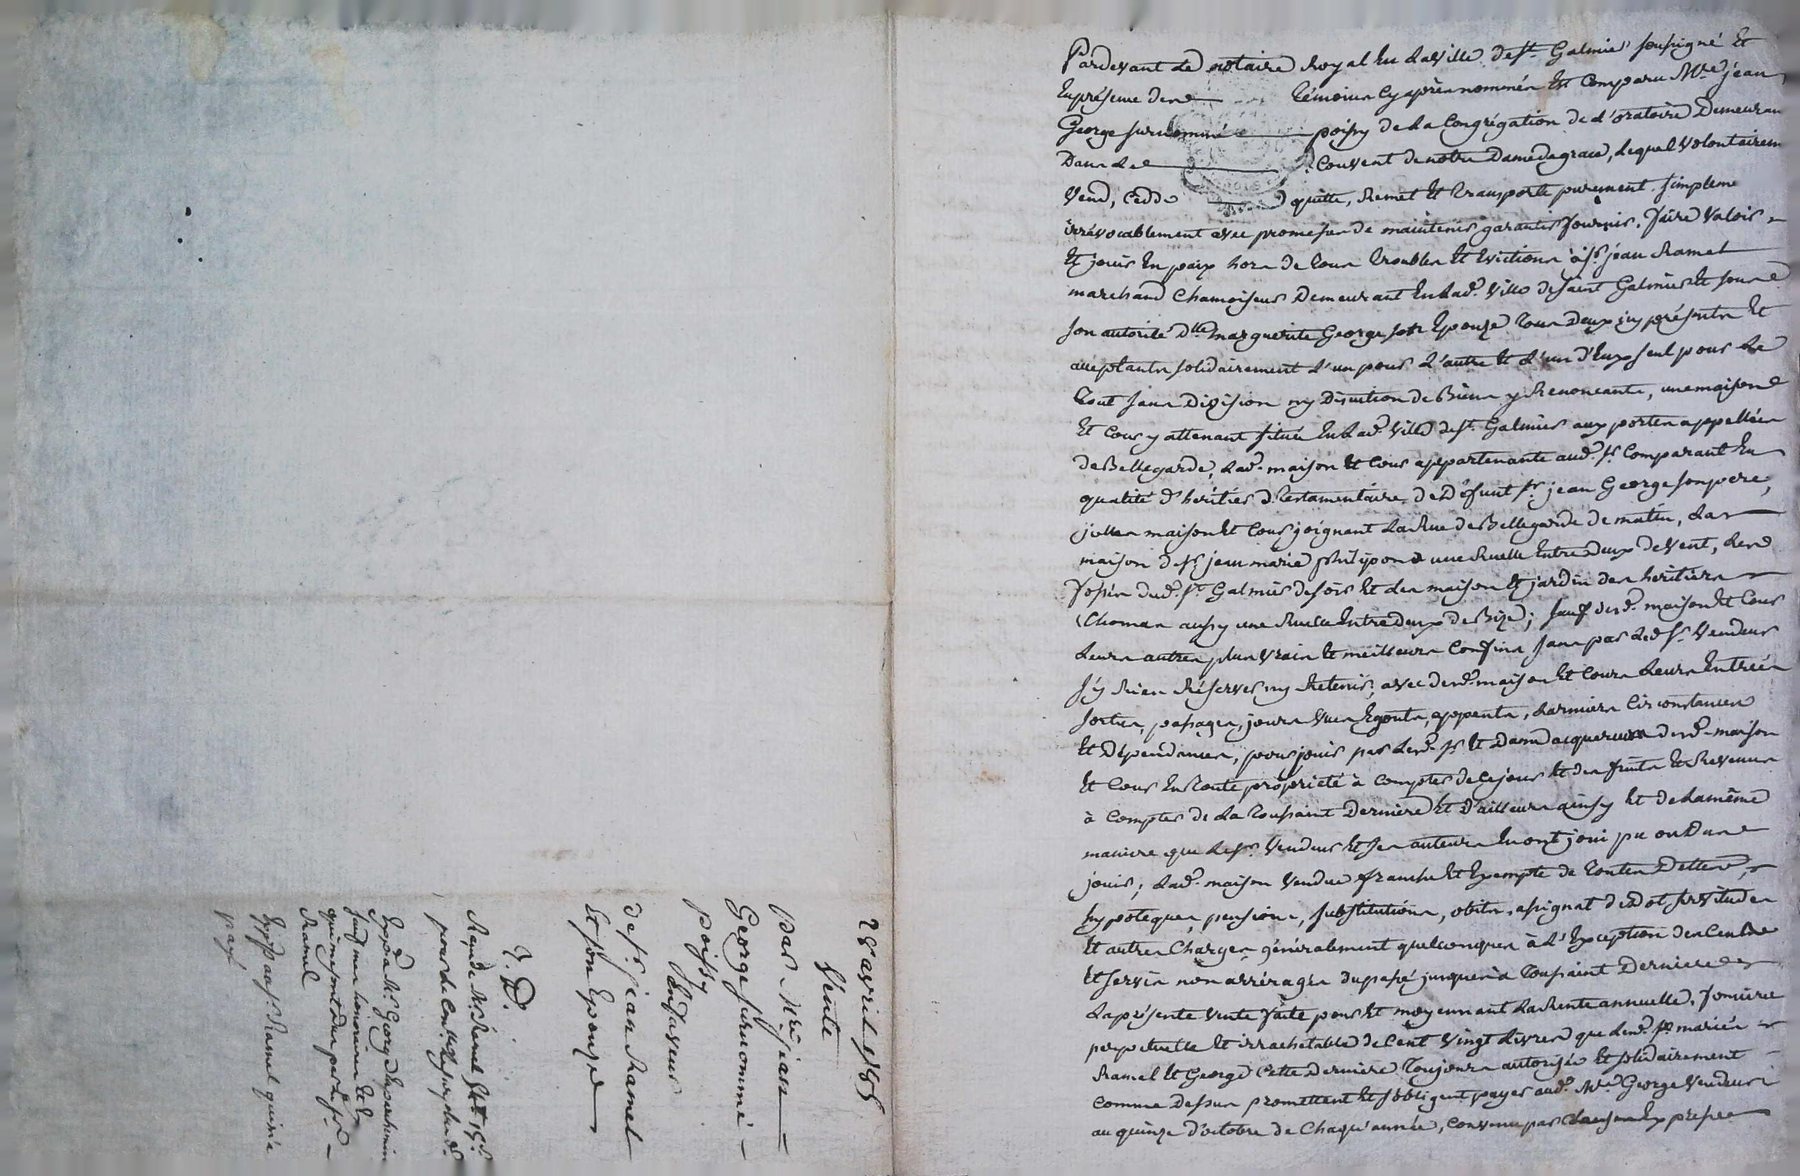 Pardevant Le notaire Royal En La Ville de st. Galmier soussigné Et
En présence des témoins Cy après nommés Est Comparu Mre. jean
George surnommé poissy de La Congrégation de L'oratoire Demeuran
Dans Le Couvent de notre Dame de grace, Lequel Volontairem
Vend, Cedde quitte, Remet Et Transporte purement, simpleme
irrévocablement avec promesse de maintenir garantir fournir, faire Valoir
Et jouir En paix hors de Tous Troubles Et Evictions à sr. jean Ramel
marchand Chamoiseur Demeurant En Lad. Ville de saint Galmier Et sous
son autorité Dlle marguerite George son Epouze Tous Deux icy présents Et
acceptants solidairement L'un pour L'autre Et L'un d'Eux seul pour Le
Tout sans Division ny Discution de Biens y Renonceants, une maison
Et Cour y attenant située En Lad. Ville de st. Galmier aux portes appellées
de Bellegarde, Lad. maison Et Cour appartenante aud. sr. Comparant En
qualité d'héritier Testamentaire de Défunt sr. jean George son pere,
jcelles maison Et Cour joignant La Rue de Bellegarde de matin, La
maison de sr. jean marie philipon une Ruelle Entre deux de Vent, Les
fossés dud. st. Galmier de soir Et Les maison Et jardin des héritiers
Thomas aussy une Ruelle Entre deux de Bize; sauf desd. maison Et Cour
Leurs autres plus Vrais Et meilleurs Confins sans par Led. sr. Vendeur
s'y Rien Réserver ny Retenir, avec desd. maison Et Cours Leurs Entrées
sorties, passages, jours Vues Egouts, appents, Larmiers Circonstances
Et Dépendances, pour jouir par Lesd. sr. Et Dame acquereurs desd. maison
Et Cour En Toute propriété à Compter de Ce jour Et des fruits Et Revenus
à Compter de La Toussaint Dernière Et D'ailleurs ainsy Et de La même
maniere que Led. sr. Vendeur Et ses auteurs En ont joui pu ou Du
jouir; Lad. maison Vendue franche Et Exempte de Toutes Dettes,
hypoteques, pensions, substitutions, obits, assignat de Dot servitudes
Et autres Charges généralement quelconques à L'Exception des Cens
Et servis non arréragés du passé jusques à Toussaint Derniere
La présente Vente faite pour Et moyennant La Rente annuelle, fonciere
perpetuelle Et irrachetable de Cent Vingt Livres que Lesd. sr. mariés
Ramel Et George Cette Derniere Toujours autorisée Et solidairement
Comme Dessus promettent Et s'obligent payer aud. Mre George Vendeur
au quinze d'octobre de Chaqu'année, Convenu par Clause Expresse
avril
Vente
par Mre. jean
George surnommé
poissy
En faveur
de sr. jean Ramel
Et son Epouze